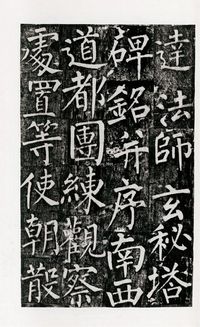 達法師玄秘塔
碑銘并序南西
道都團練觀察
處置等使朝散